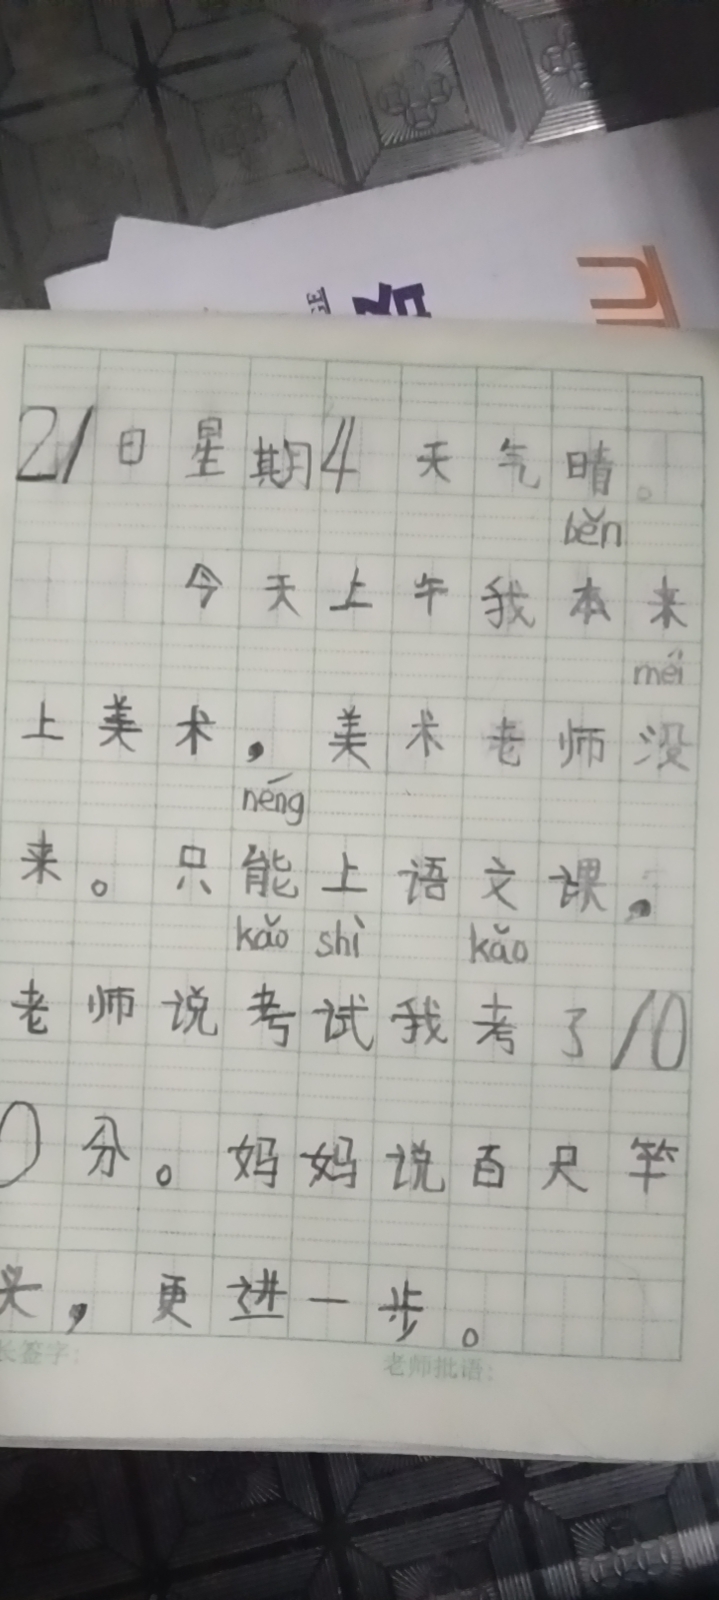 21日星期4天气晴。
běn
今天上午我本来
méi
上美术，美术老师没
néng
来。只能上语文课，
kǎo shì kǎo
老师说考试我考了10
0分。妈妈说百尺竿
头，更进一步。
长签字：
老师批语：